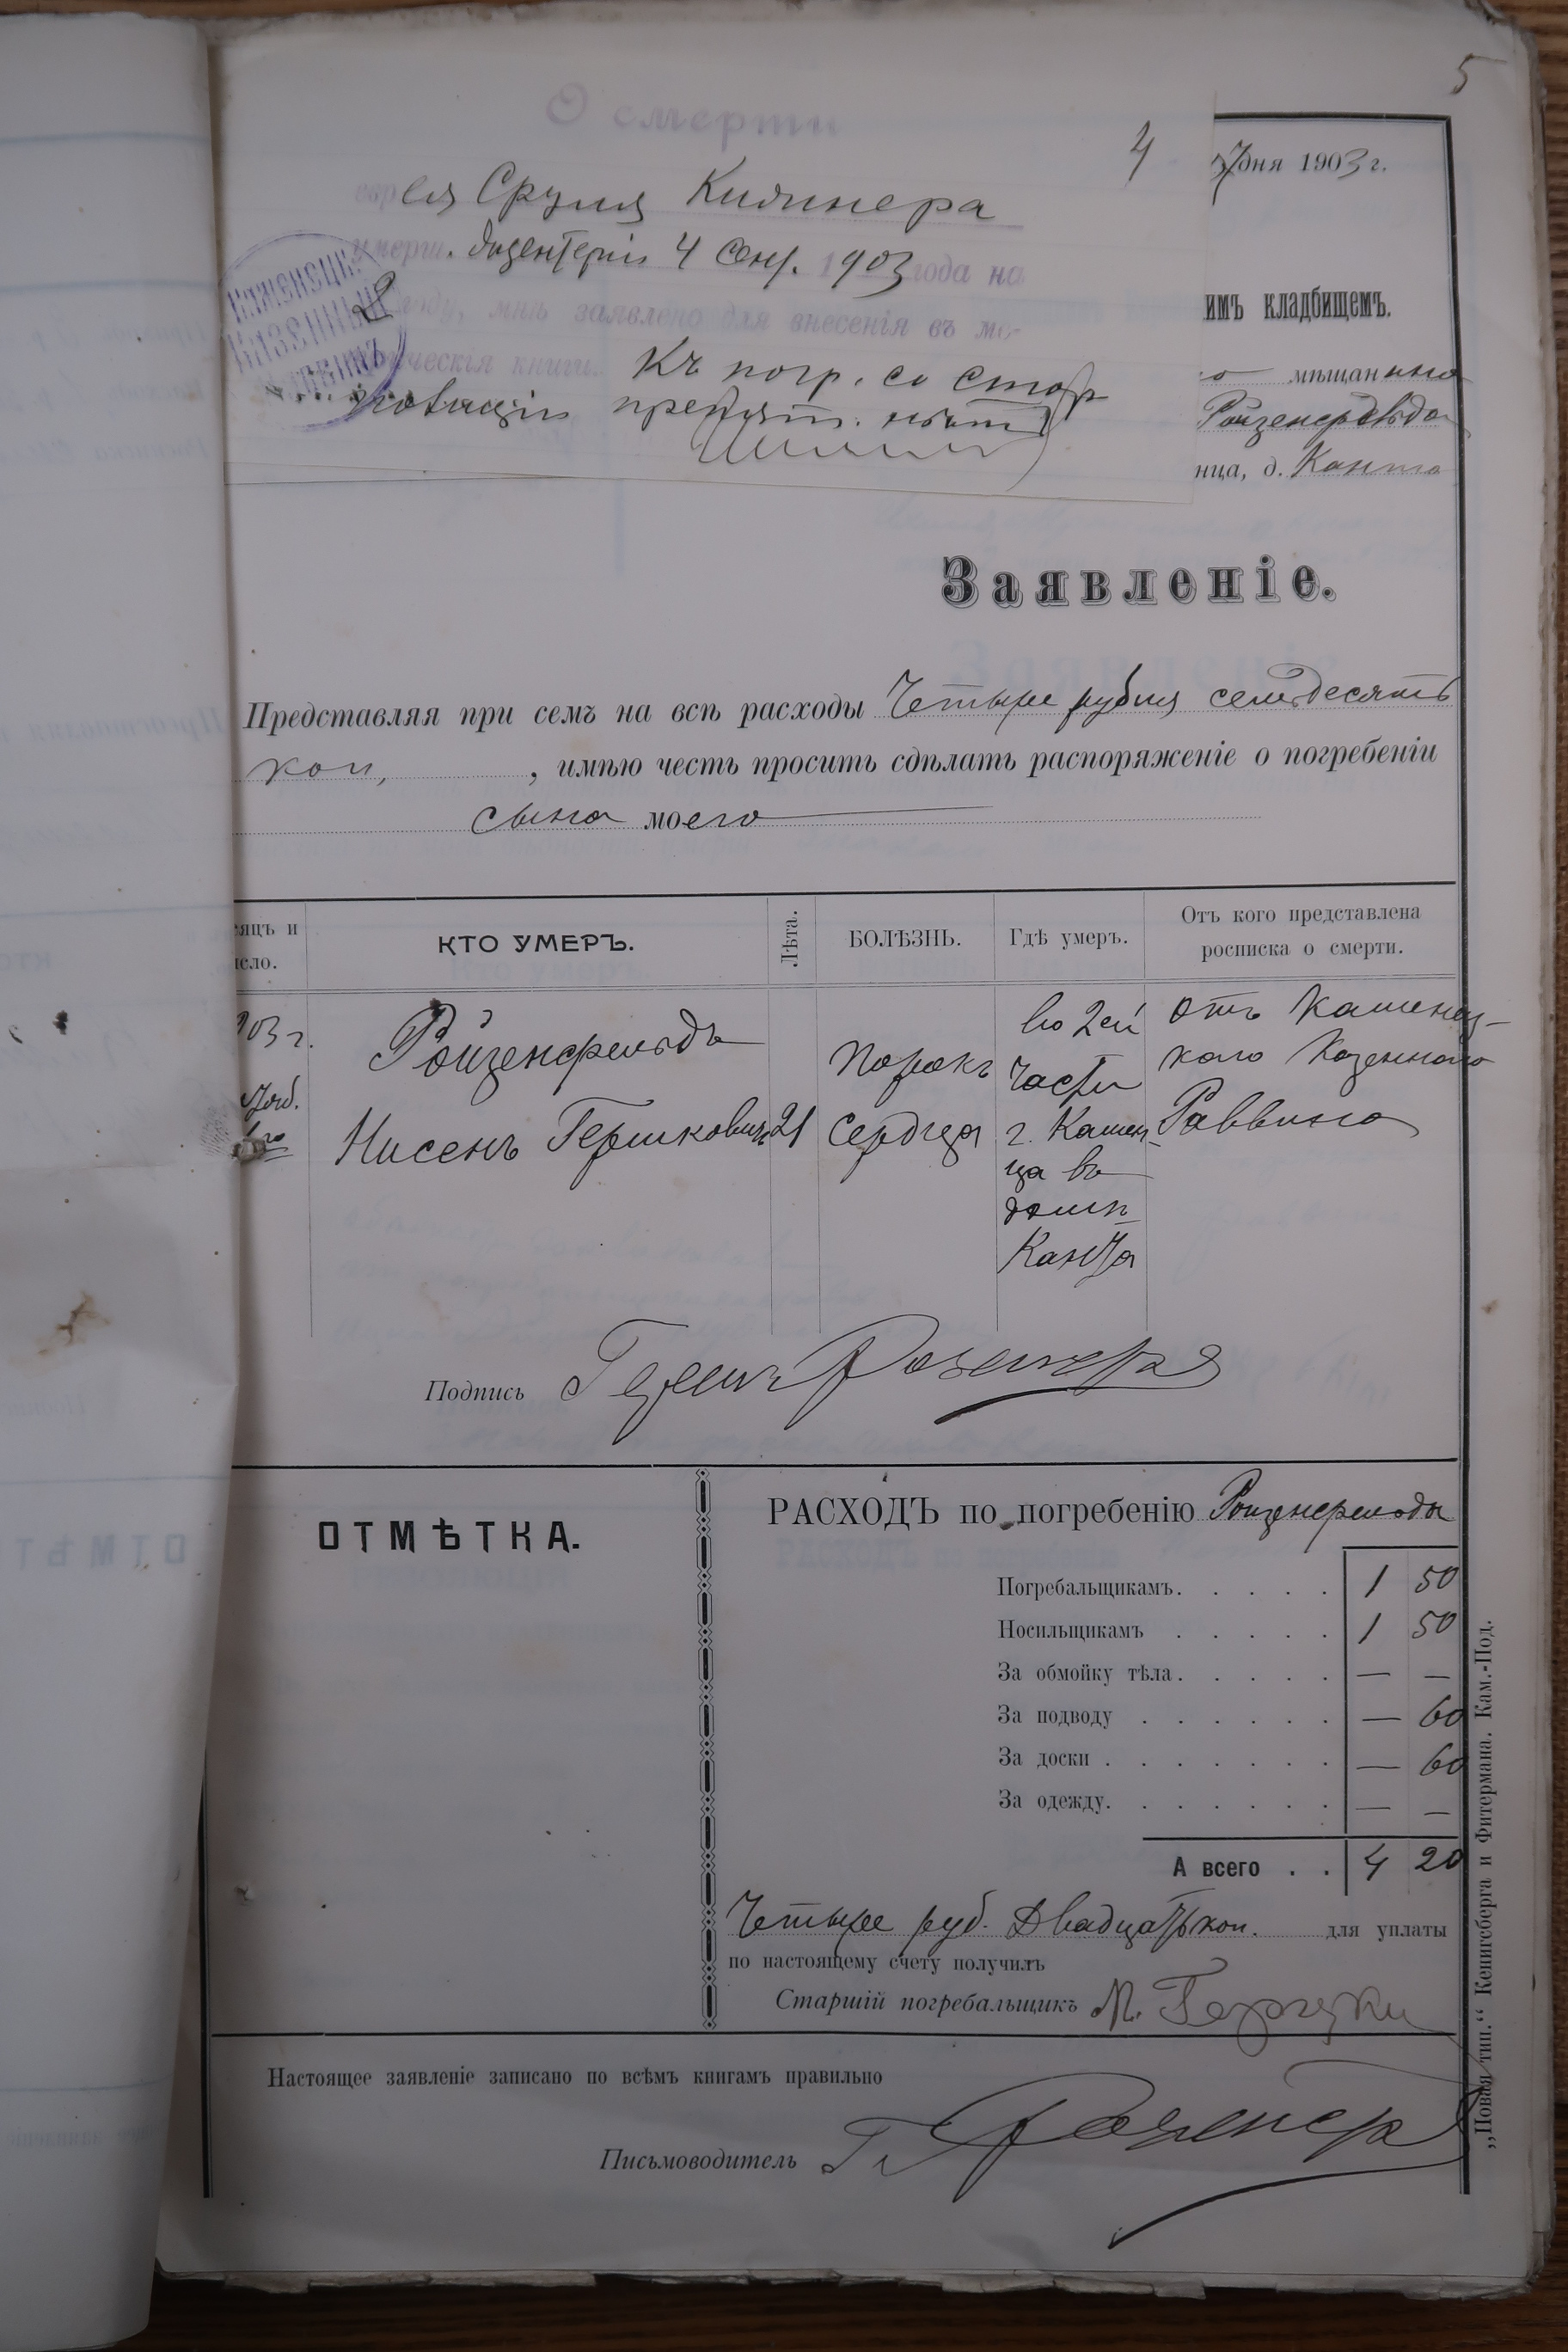 5
О смерти
4
еврея Сруля Килинера
умерш. дизентеріи 4 Сент. 1903 года на
году, мнѣ заявлено для внесенія въ ме-
рическія книги. Къ погр. со стор
препятст. нѣтъ
КАМЕНЕЦКІЙ
КАЗЕННЫЙ
РАВВИНЪ
дня 1903 г.
имъ кладбищемъ.
мѣщанина
Ройзенфельда
нца, д. Канто
Заявленіе.
Представляя при семъ на всѣ расходы Четыре рубля семьдесятъ
коп, , имѣю честь просить сдѣлать распоряженіе о погребеніи
сына моего
яцъ и
сло.
КТО УМЕРЪ.
Лѣта.
БОЛѢЗНЬ.
Гдѣ умеръ.
Отъ кого представлена
росписка о смерти.
903 г.
Ройзенфельдъ
Нисенъ Гершковичъ
21
Порокъ
Сердца
во 2ей
части
г. Камен
ца въ
домѣ
Канта
отъ Каменец-
каго Казеннаго
Раввина
Подпись
ОТМѢТКА.
РАСХОДЪ по погребенію Ройзенфельда
Погребальщикамъ. . . . . 1 50
Носильщикамъ . . . . . 1 50
За обмойку тѣла. . . . . — —
За подводу . . . . . . — 60
За доски . . . . . . . — 60
За одежду. . . . . . . — —
А всего . . 4 20
Четыре руб. Двадцать коп. для уплаты
по настоящему счету получилъ
Старшій погребальщикъ М.
Настоящее заявленіе записано по всѣмъ книгамъ правильно
Письмоводитель
„Новая тип.“ Кенигсберга и Фитермана. Кам.-Под.